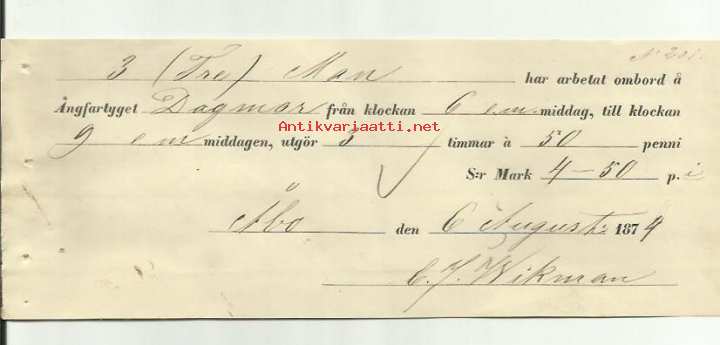 No 201.
3 (Tre) Man har arbetat ombord å
Ångfartyget Dagmar från klockan 6 em middag, till klockan
Antikvariaatti.net
9 em middagen, utgör 3 timmar à 50 penni
S:r Mark 4-50 p. i
Åbo den 6 August: 1879
C. J. Wikman